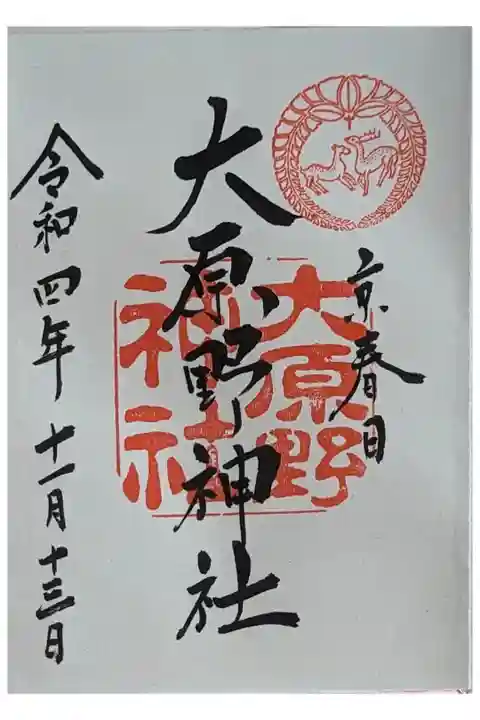 京春日
大原野神社
大原野
神社
令和四年十一月十三日